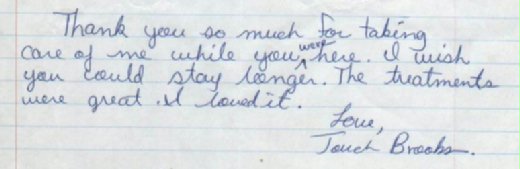 Thank you so much for taking
care of me while you were here. I wish
you could stay longer. The treatments
were great. I loved it.
Love,
Brooks.